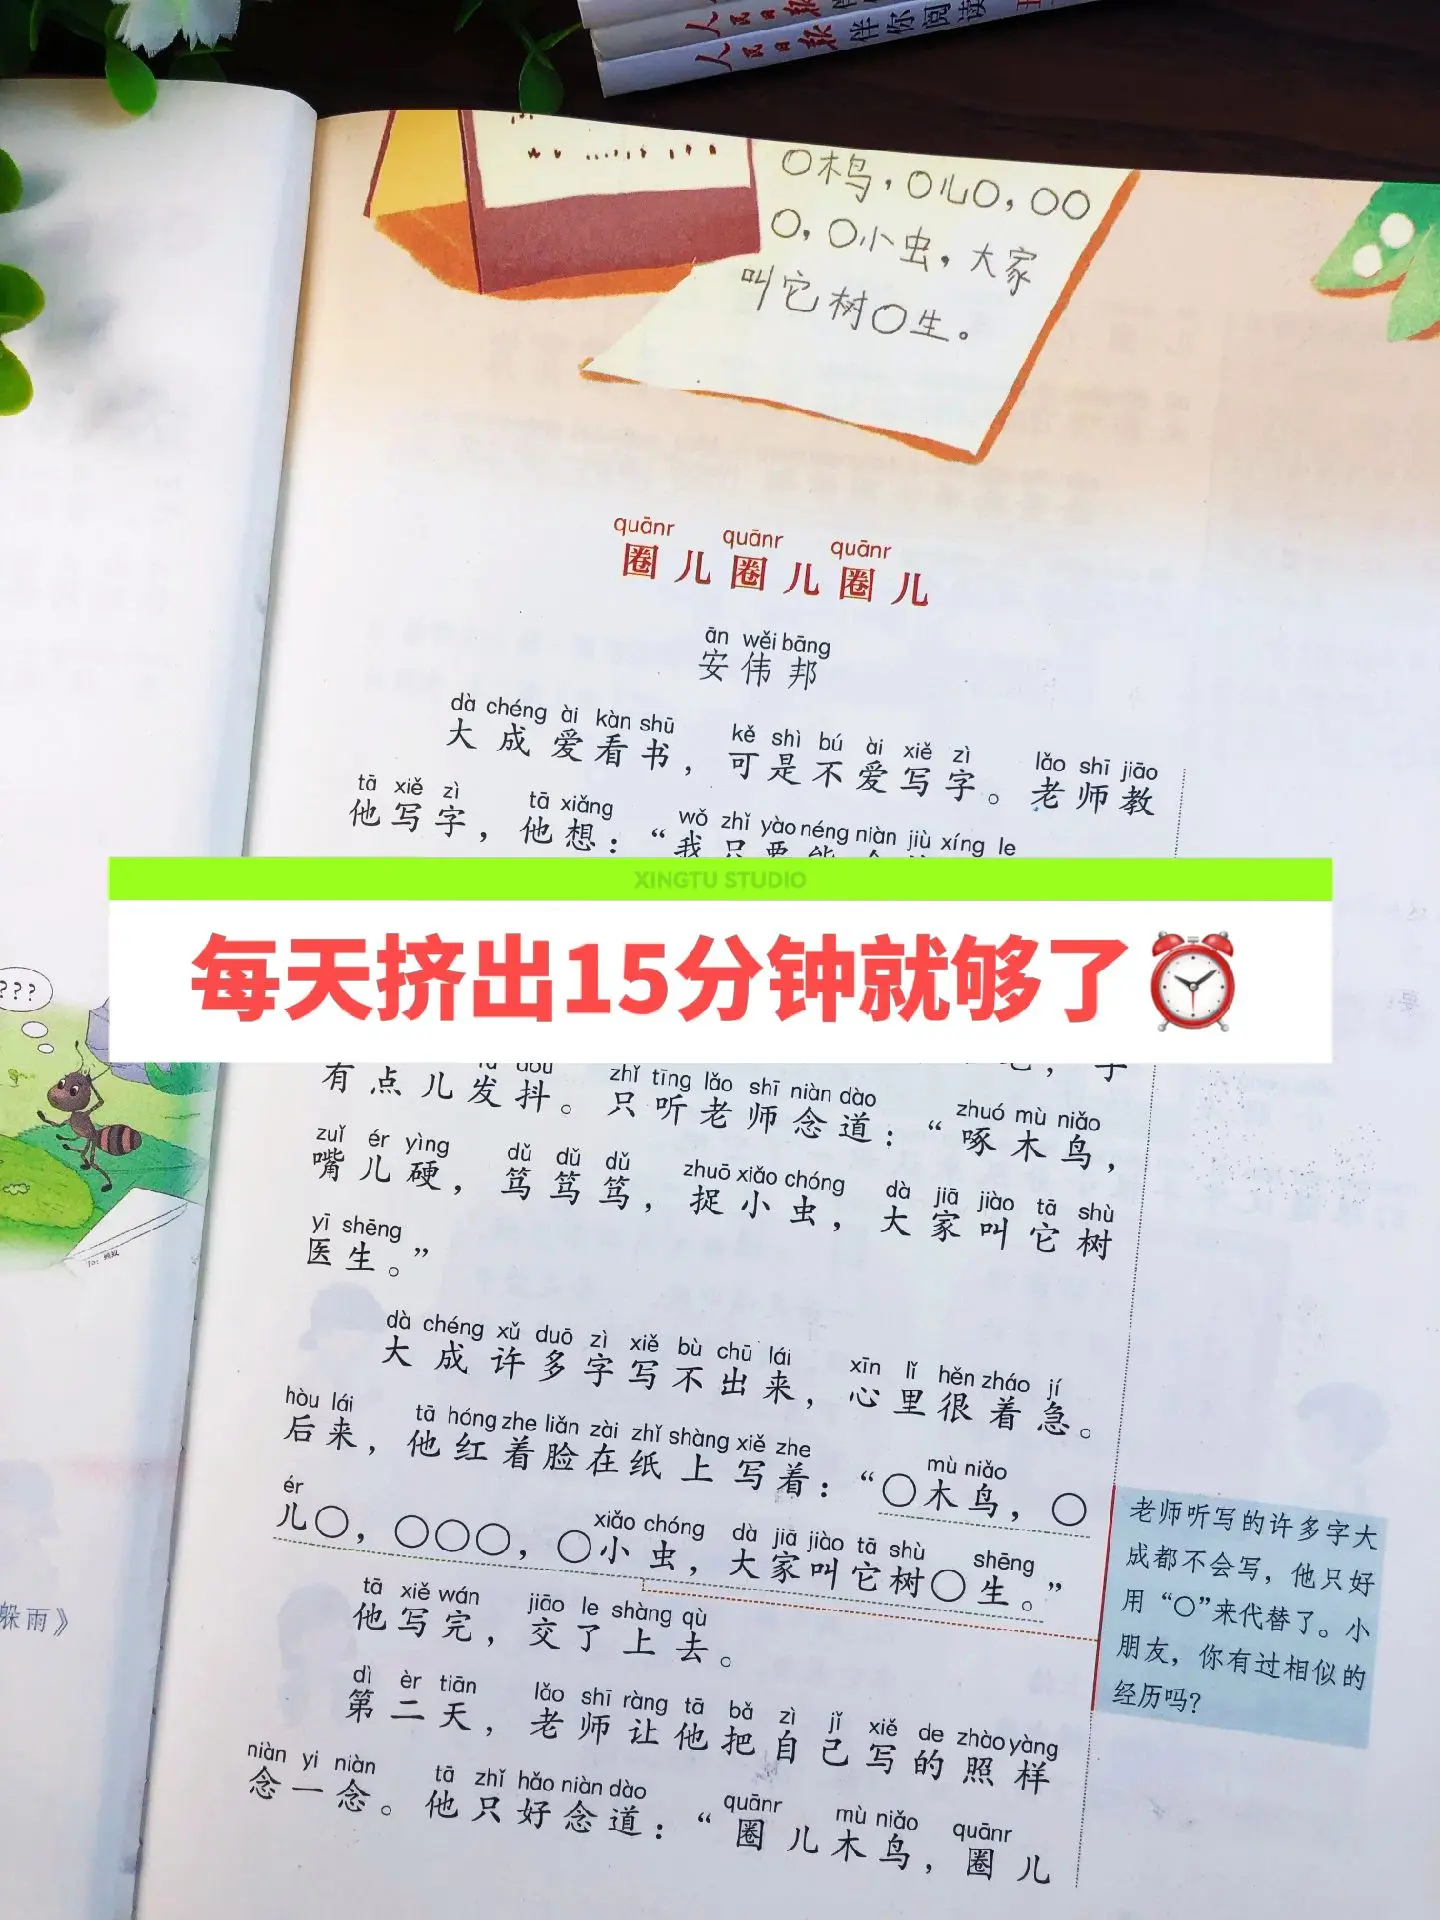 人民日报 伴你阅读
○木鸟，○儿○，○○
○，○小虫，大家
叫它树○生。
quānr quānr quānr
圈儿圈儿圈儿
ān wěi bāng
安伟邦
dà chéng ài kàn shū kě shì bú ài xiě zì lǎo shī jiāo
大成爱看书，可是不爱写字。老师教
tā xiě zì tā xiǎng wǒ zhǐ yào néng niàn jiù xíng le
他写字，他想：“我只要能
XINGTU STUDIO
每天挤出15分钟就够了⏰
???
有点儿发抖。只听老师念道：“啄木鸟，
zhǐ tīng lǎo shī niàn dào zhuó mù niǎo
zuǐ ér yìng dǔ dǔ dǔ zhuō xiǎo chóng dà jiā jiào tā shù
嘴儿硬，笃笃笃，捉小虫，大家叫它树
yī shēng
医生。”
dà chéng xǔ duō zì xiě bù chū lái xīn lǐ hěn zháo jí
大成许多字写不出来，心里很着急。
hòu lái tā hóng zhe liǎn zài zhǐ shàng xiě zhe mù niǎo
后来，他红着脸在纸上写着：“○木鸟，○
ér xiǎo chóng dà jiā jiào tā shù shēng
儿○，○○○，○小虫，大家叫它树○生。”
tā xiě wán jiāo le shàng qù
他写完，交了上去。
dì èr tiān lǎo shī ràng tā bǎ zì jǐ xiě de zhào yàng
第二天，老师让他把自己写的照样
niàn yi niàn tā zhǐ hǎo niàn dào quānr mù niǎo quānr
念一念。他只好念道：“圈儿木鸟，圈儿
老师听写的许多字大
成都不会写，他只好
用“○”来代替了。小
朋友，你有过相似的
经历吗？
躲雨》